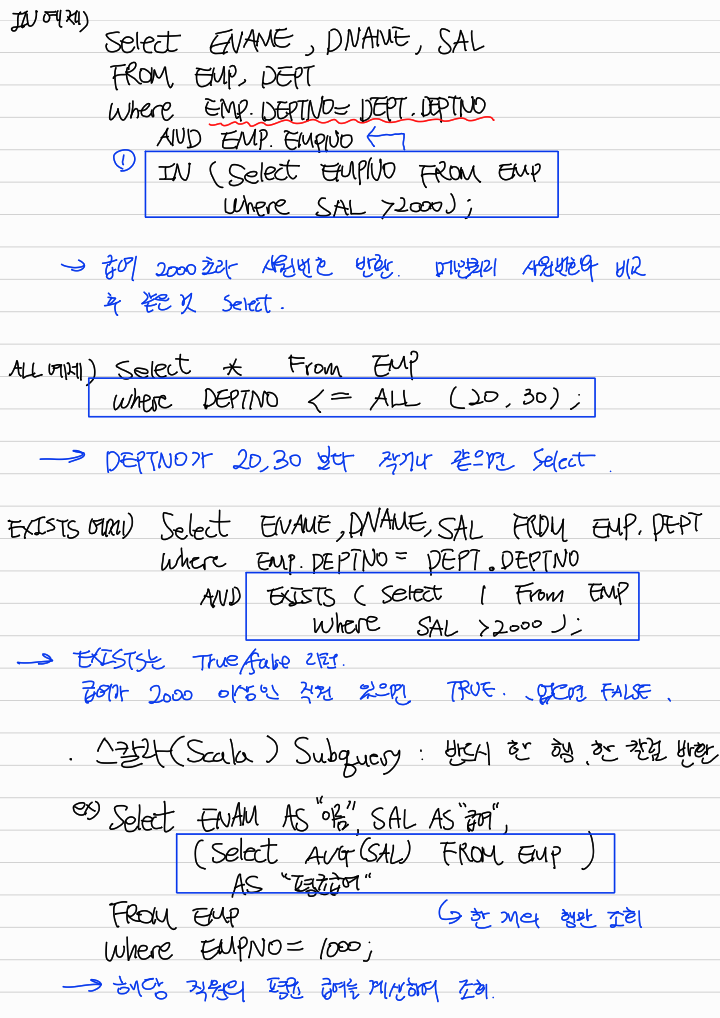 IN 예제)
Select ENAME, DNAME, SAL
FROM EMP, DEPT
Where EMP.DEPTNO = DEPT.DEPTNO
AND EMP.EMPNO
① IN (Select EMPNO FROM EMP
Where SAL >2000);
→ 급여 2000초과 사원번호 반환. 메인쿼리 사원번호와 비교
후 같은 것 Select.
ALL 예제) Select * From EMP
Where DEPTNO <= ALL (20, 30);
→ DEPTNO가 20,30 보다 작거나 같으면 Select.
EXISTS 예제) Select ENAME, DNAME, SAL FROM EMP. DEPT
Where EMP.DEPTNO = DEPT.DEPTNO
AND EXISTS (Select 1 From EMP
Where SAL >2000);
→ EXISTS는 True/false 리턴.
급여가 2000 이상인 직원 있으면 TRUE. 없으면 FALSE.
. 스칼라(Scala) Subquery : 반드시 한 행, 한 칼럼 반환
ex) Select ENAM AS "이름", SAL AS "급여",
(Select AVG(SAL) FROM EMP)
AS "평균급여"
FROM EMP
↳ 한 개의 행만 조회
Where EMPNO = 1000;
→ 해당 직원의 평균 급여를 계산하여 조회.